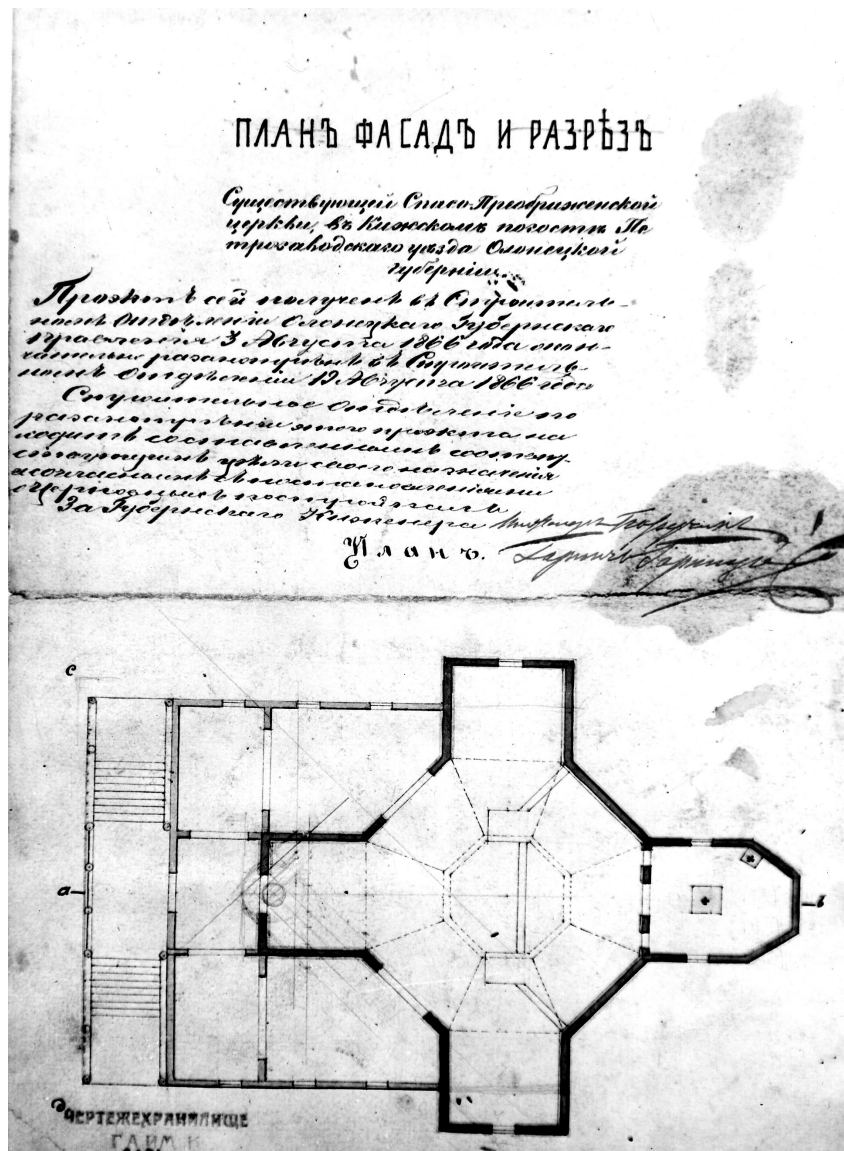 ПЛАНЪ ФАСАДЪ И РАЗРѢЗЪ
Существующей Спасо-Преображенской
церкви, въ Кижскомъ погостѣ Пе
трозаводскаго уѣзда Олонецкой
губерніи.
Проэктъ сей полученъ въ Строитель-
номъ Отдѣленіи Олонецкаго Губернскаго
Правленія 3 Августа 1866 года окон-
чательно разсмотрѣнъ въ Строитель-
номъ Отдѣленіи 19 Августа 1866 года
Строительное Отдѣленіе по
разсмотрѣніи этого проэкта на
ходитъ составленнымъ соотвѣт-
ствующимъ цѣли своего назначенія
За Губернскаго Инженера
Планъ.
с
а
в
ЧЕРТЕЖЕХРАНИЛИЩЕ
ГАИМК